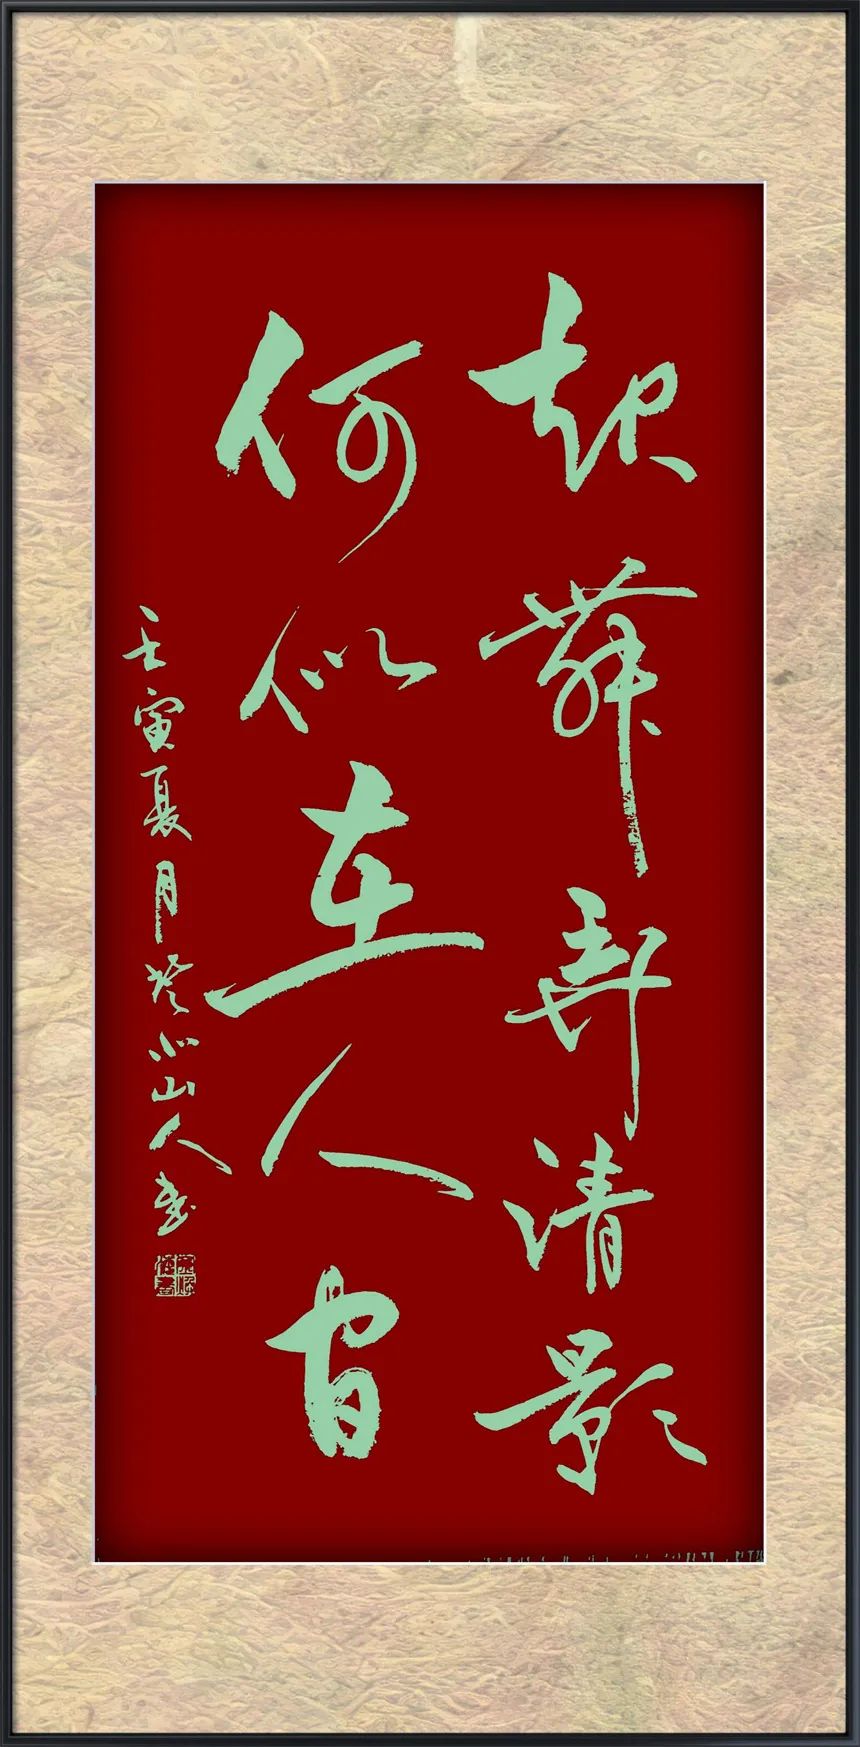 起舞弄清影
何似在人间
壬寅夏月岑心山人书